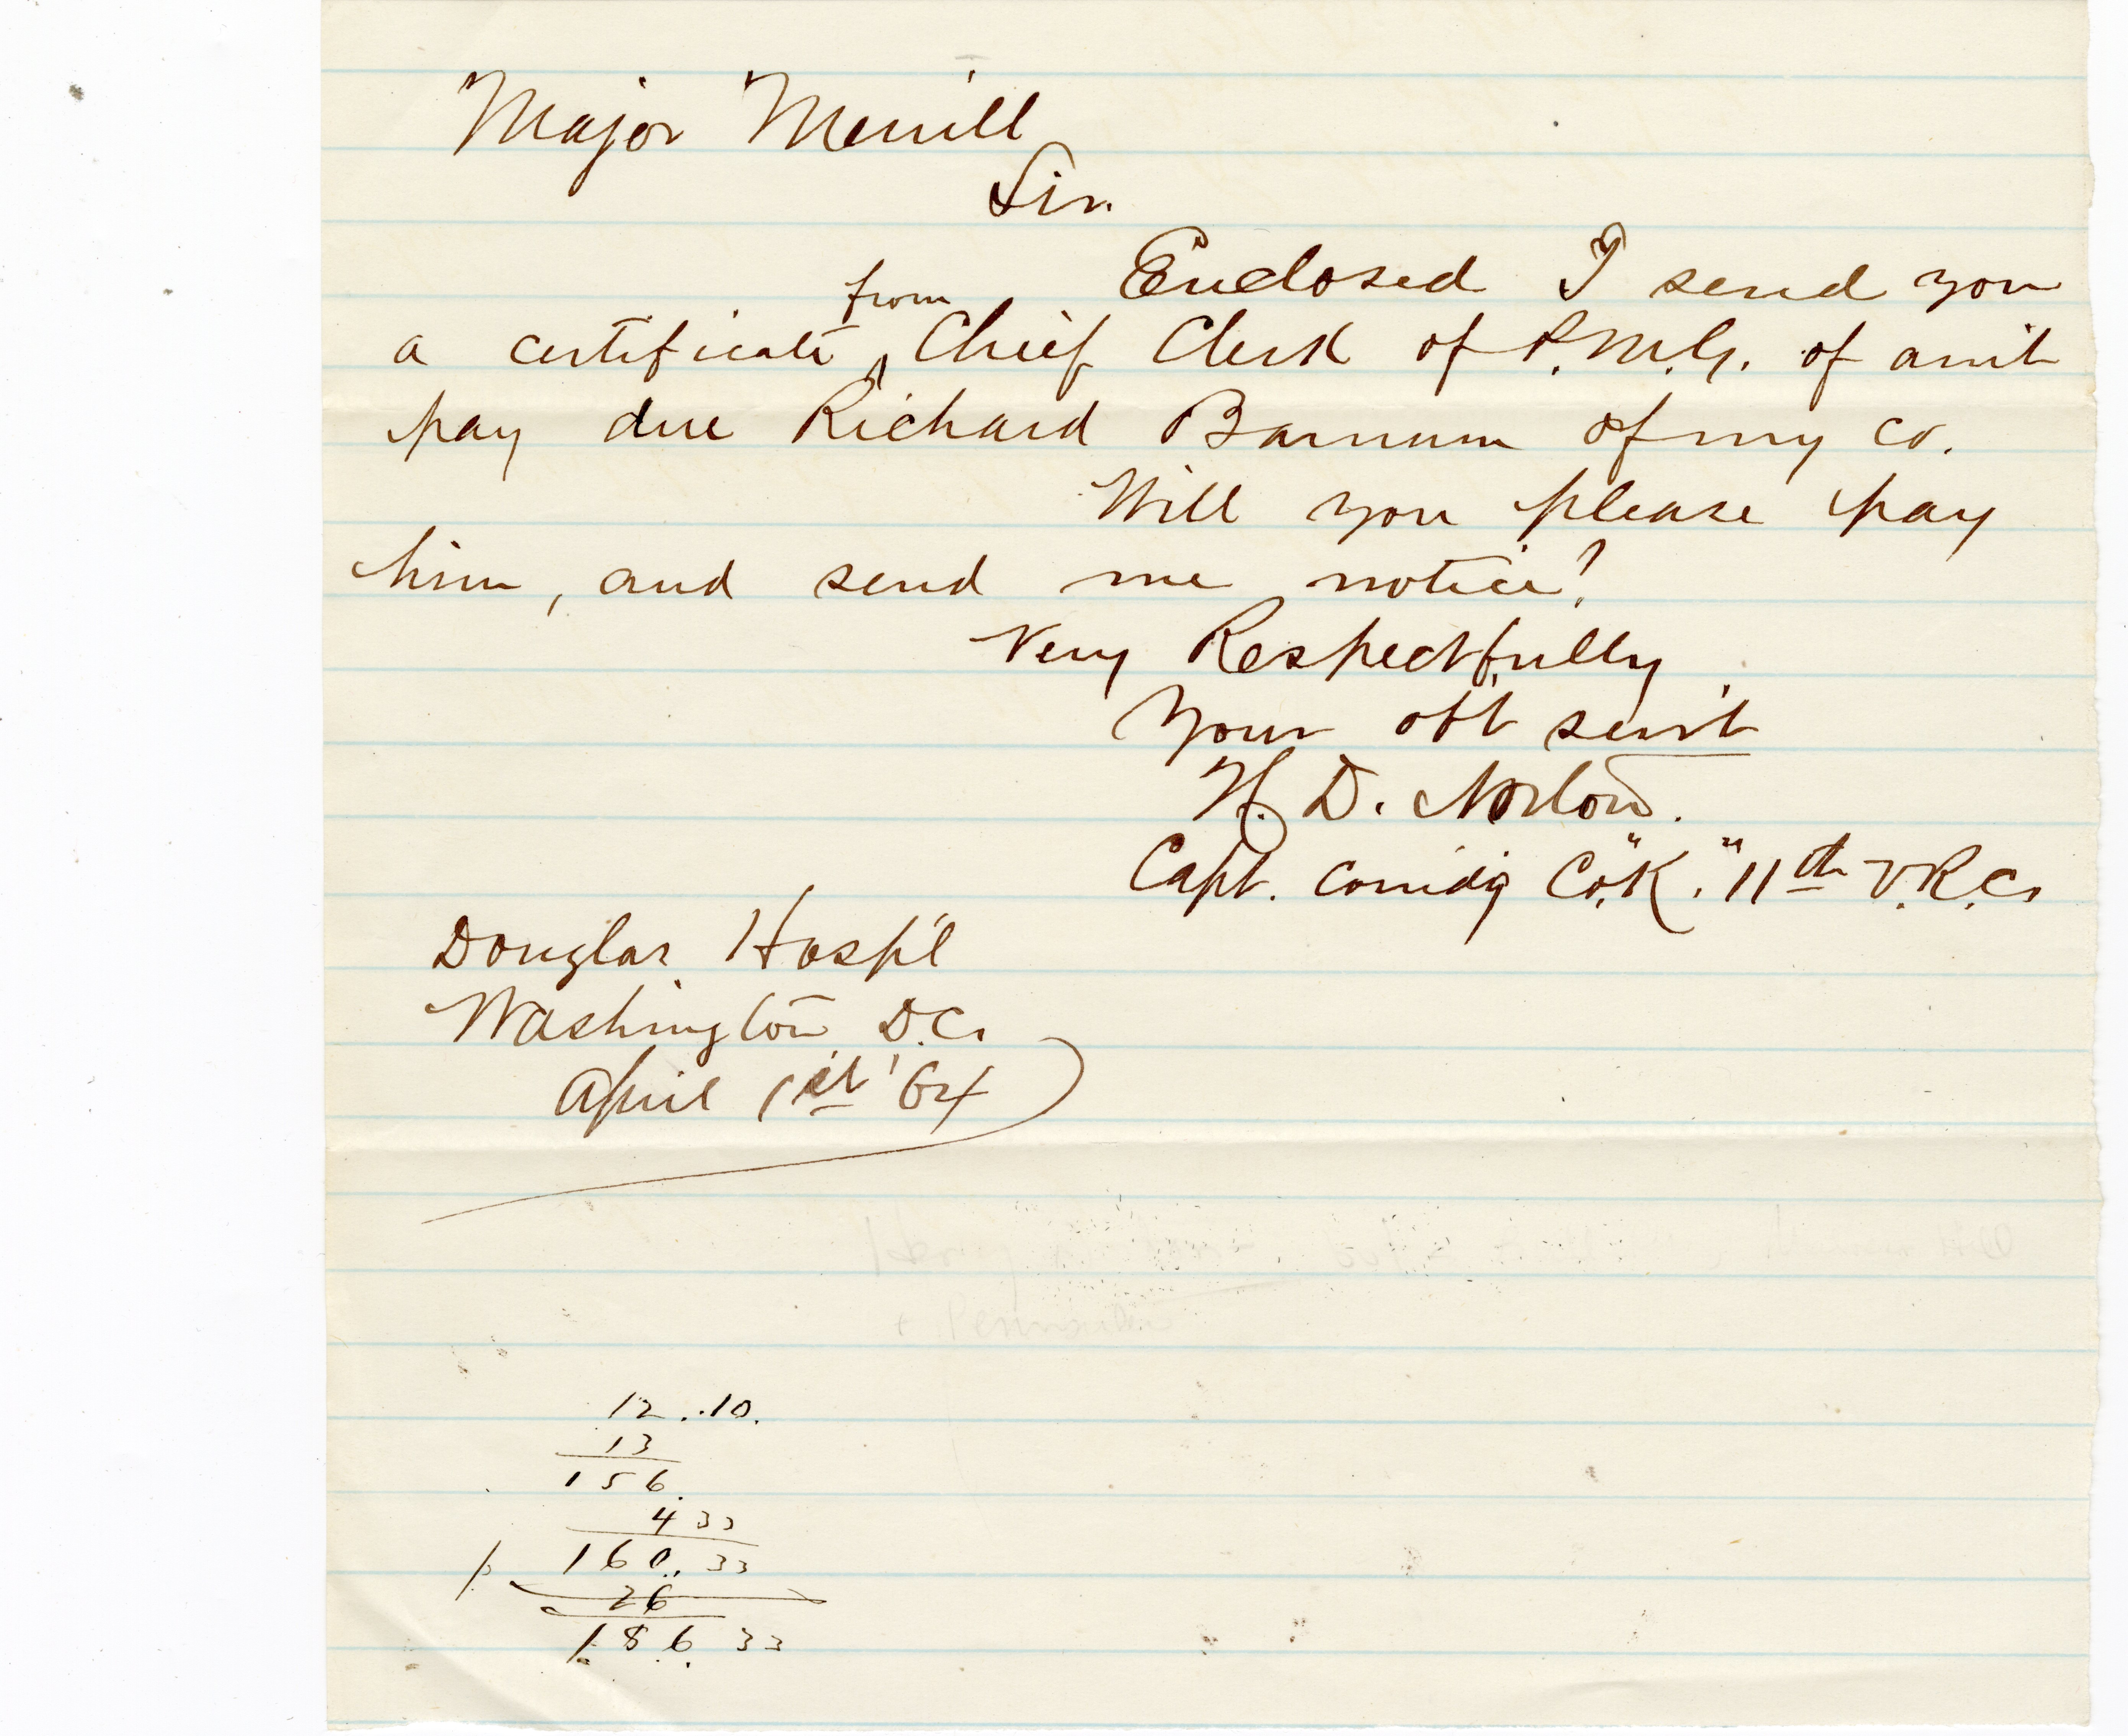 Major Merrill
Sir.
Enclosed I send you
from
a certificate Chief Clerk of P.M.G. of am't
pay due Richard Barnum of my co.
Will you please pay
him, and send me notice?
Very Respectfully
Your obt serv't
H. D. Norton.
Capt. Comdg Co. "K." 11th V.R.C.
Douglas Hosp'l
Washington D.C.
April 1st '64
12..10.
13
156.
4 33
160.. 33
26
186. 33